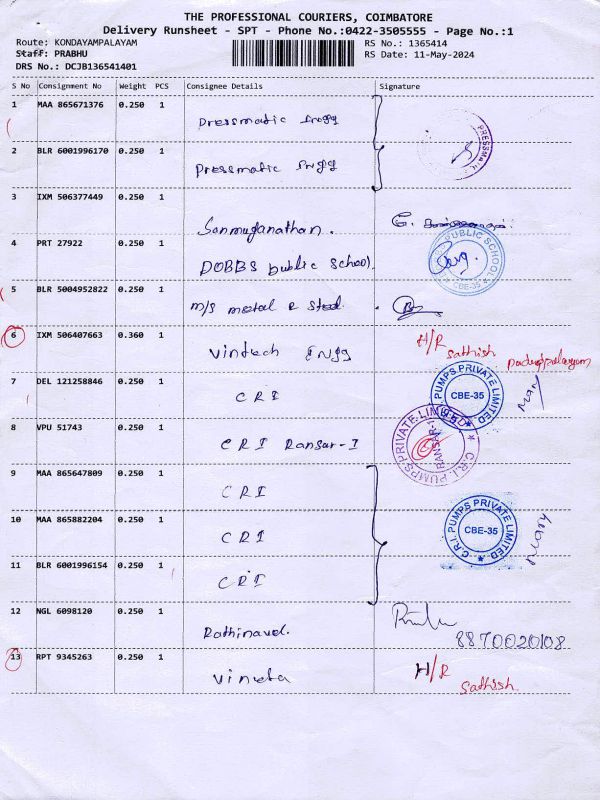 THE PROFESSIONAL COURIERS, COIMBATORE
Delivery Runsheet - SPT - Phone No.:0422-3505555 - Page No.:1
Route: KONDAYAMPALAYAM
RS No.: 1365414
Staff: PRABHU
RS Date: 11-May-2024
DRS No.: DCJB136541401
S No Consignment No Weight PCS Consignee Details Signature
1 MAA 865671376 0.250 1 Pressmatic Engg
PRESSMA
2 BLR 6001996170 0.250 1 Pressmatic Engg
3 IXM 506377449 0.250 1 Sanmuganathan.
4 PRT 27922 0.250 1 DOBBS public School.
PUBLIC SCHOOL
CBE-35
5 BLR 5004952822 0.250 1 M/S metal & Steel.
6 IXM 506407663 0.360 1 Vintech Engg H/R Sathish
7 DEL 121258846 0.250 1 CRI
C.R.I. PUMPS PRIVATE LIMITED
CBE-35
8 VPU 51743 0.250 1 CRI Ransar-I
C.R.I. PUMPS PRIVATE LIMITED
RANSAR-1
9 MAA 865647809 0.250 1 CRI
10 MAA 865882204 0.250 1 CRI
C.R.I. PUMPS PRIVATE LIMITED
CBE-35
11 BLR 6001996154 0.250 1 CRI
12 NGL 6098120 0.250 1 Rathinavel.
8870020108
13 RPT 9345263 0.250 1 Vineta H/R
Sathish